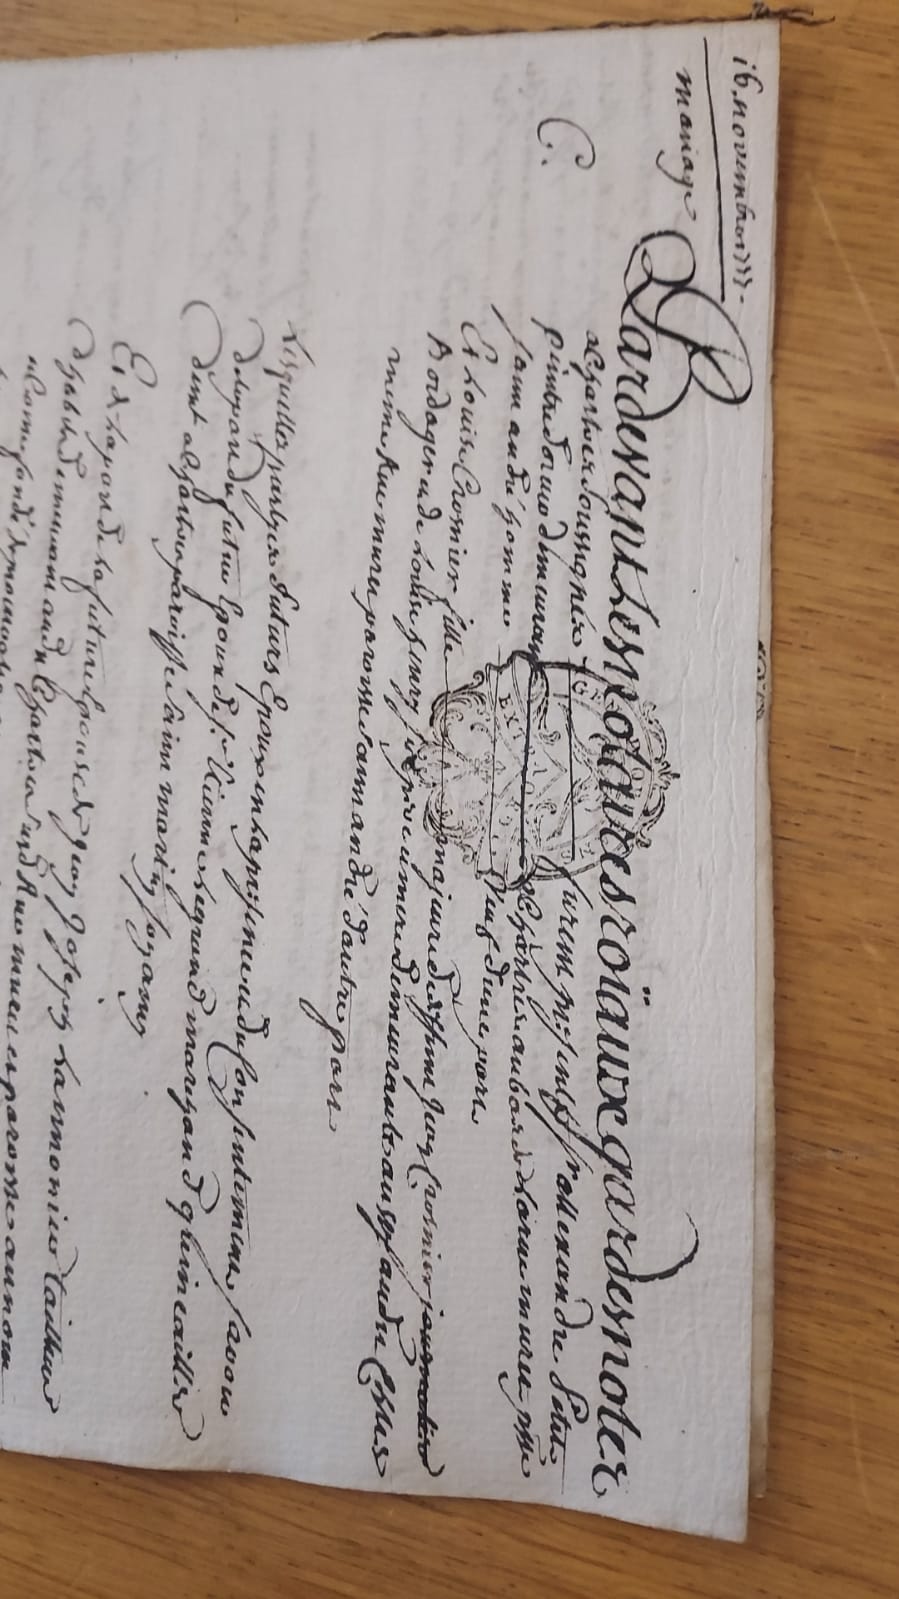 16. novembre 1777.
mariage
Pardevant Les notaires roïaux gardesnotes
C.
a Chartres Soussignés furent presents Sr allexandre Petit
peintre demeurant a Chartres au bas de La rue muret psse
saint andré homme Veuf d'une part
Et Louise Crosnier fille majeure de deffunt Jean Crosnier journalier
Bordager et de Louise henry ses pere et mere demeurante aussy audit Chtres
meme Rue muret paroisse Saint andré d'autre part
Lesquelles partyes futurs Epoux en La presence et du Consentement savoir
de la part du futur Epoux de Sr Etienne Legrand marchand quincaillier
demt a Chartres paroisse Saint martin son amy
Et de La part de La future Epouse de Jean Joseph Lannonier tailleur
d'habits demeurant audit Chartres susd Rue muret et paroisse au nom
et Come fondé de procuration
GEN D'ORLEANS
EXTRAORD.